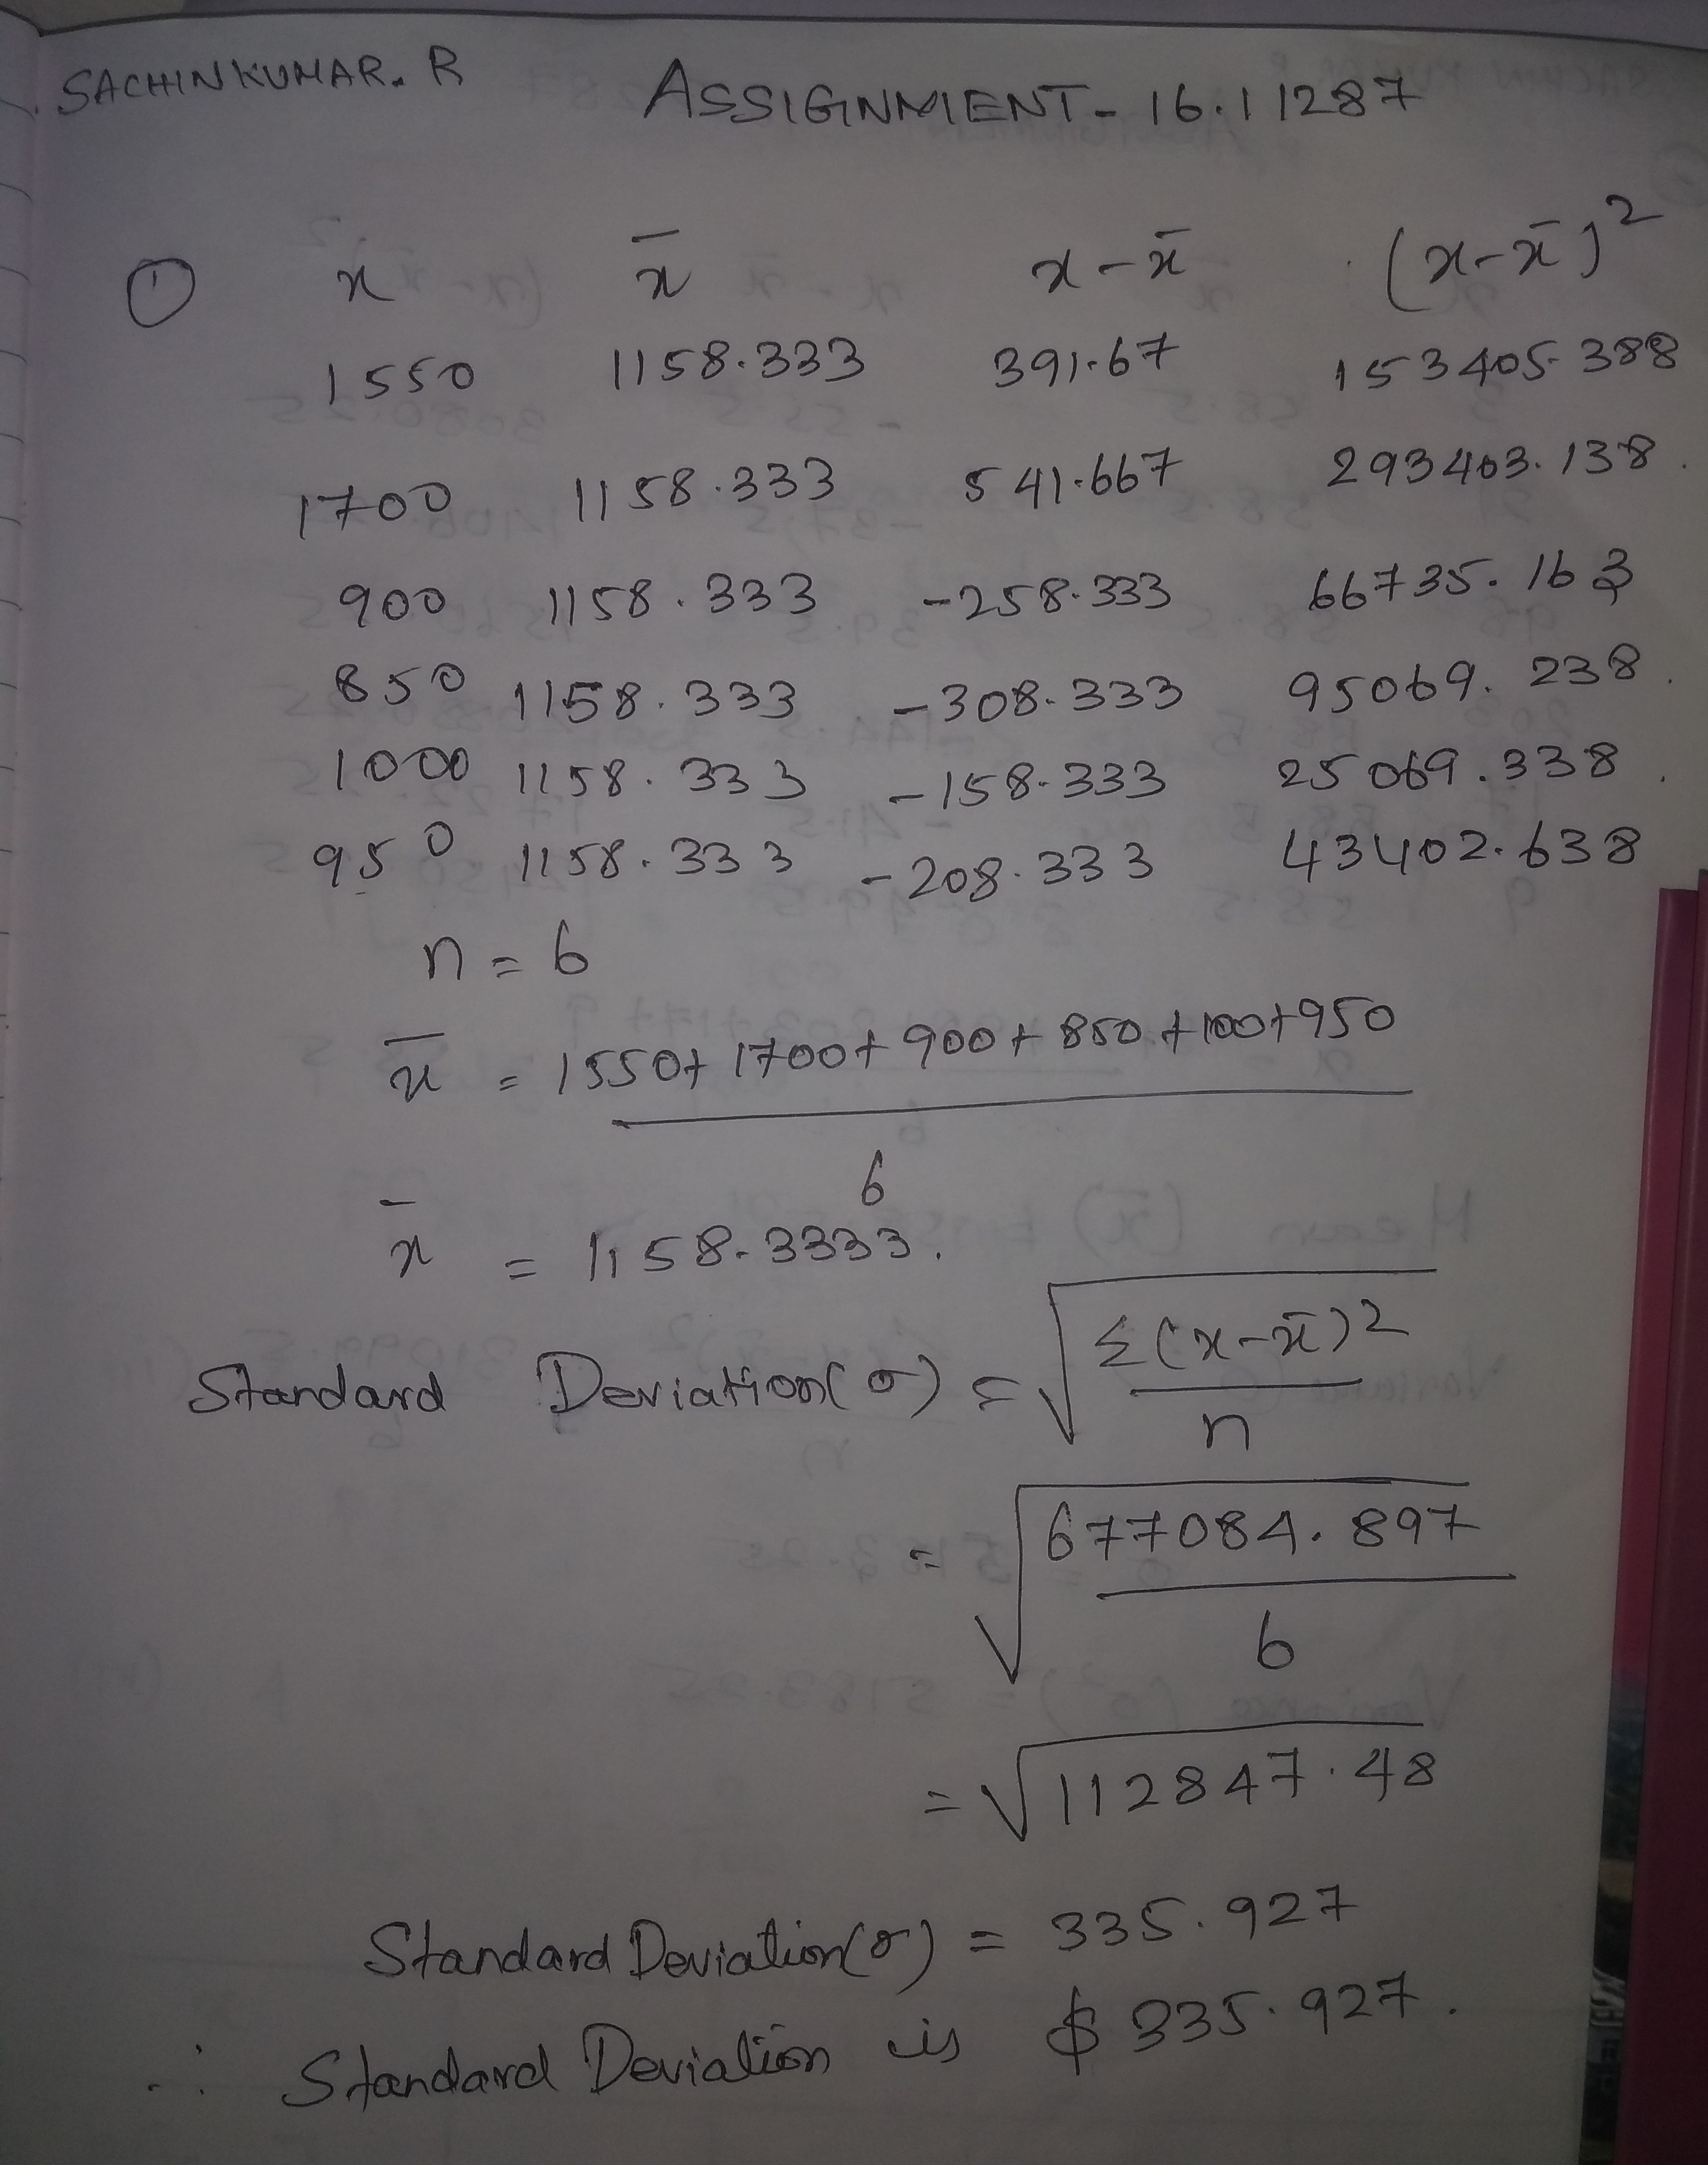 SACHINKUMAR. R ASSIGNMENT - 16.11287
① x x̄ x - x̄ (x - x̄)²
1550 1158.333 391.67 153405.388
1700 1158.333 541.667 293403.138
900 1158.333 -258.333 66735.163
850 1158.333 -308.333 95069.238
1000 1158.333 -158.333 25069.338
950 1158.333 -208.333 43402.638
n = 6
x̄ = 1550+ 1700+ 900+ 850 +100+950
6
x̄ = 1158.3333.
Standard Deviation(σ) = √ Σ(x-x̄)²
n
= √ 677084.897
6
= √112847.48
Standard Deviation(σ) = 335.927
∴ Standard Deviation is $ 335.927.